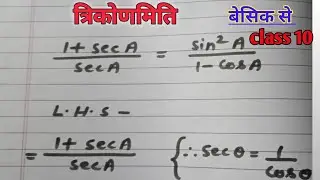 त्रिकोणमिति
बेसिक से
class 10
1+ secA / secA = sin² A / 1 - cosA
L.H.S –
= 1+ secA / secA { ∴ secθ = 1 / cosθ